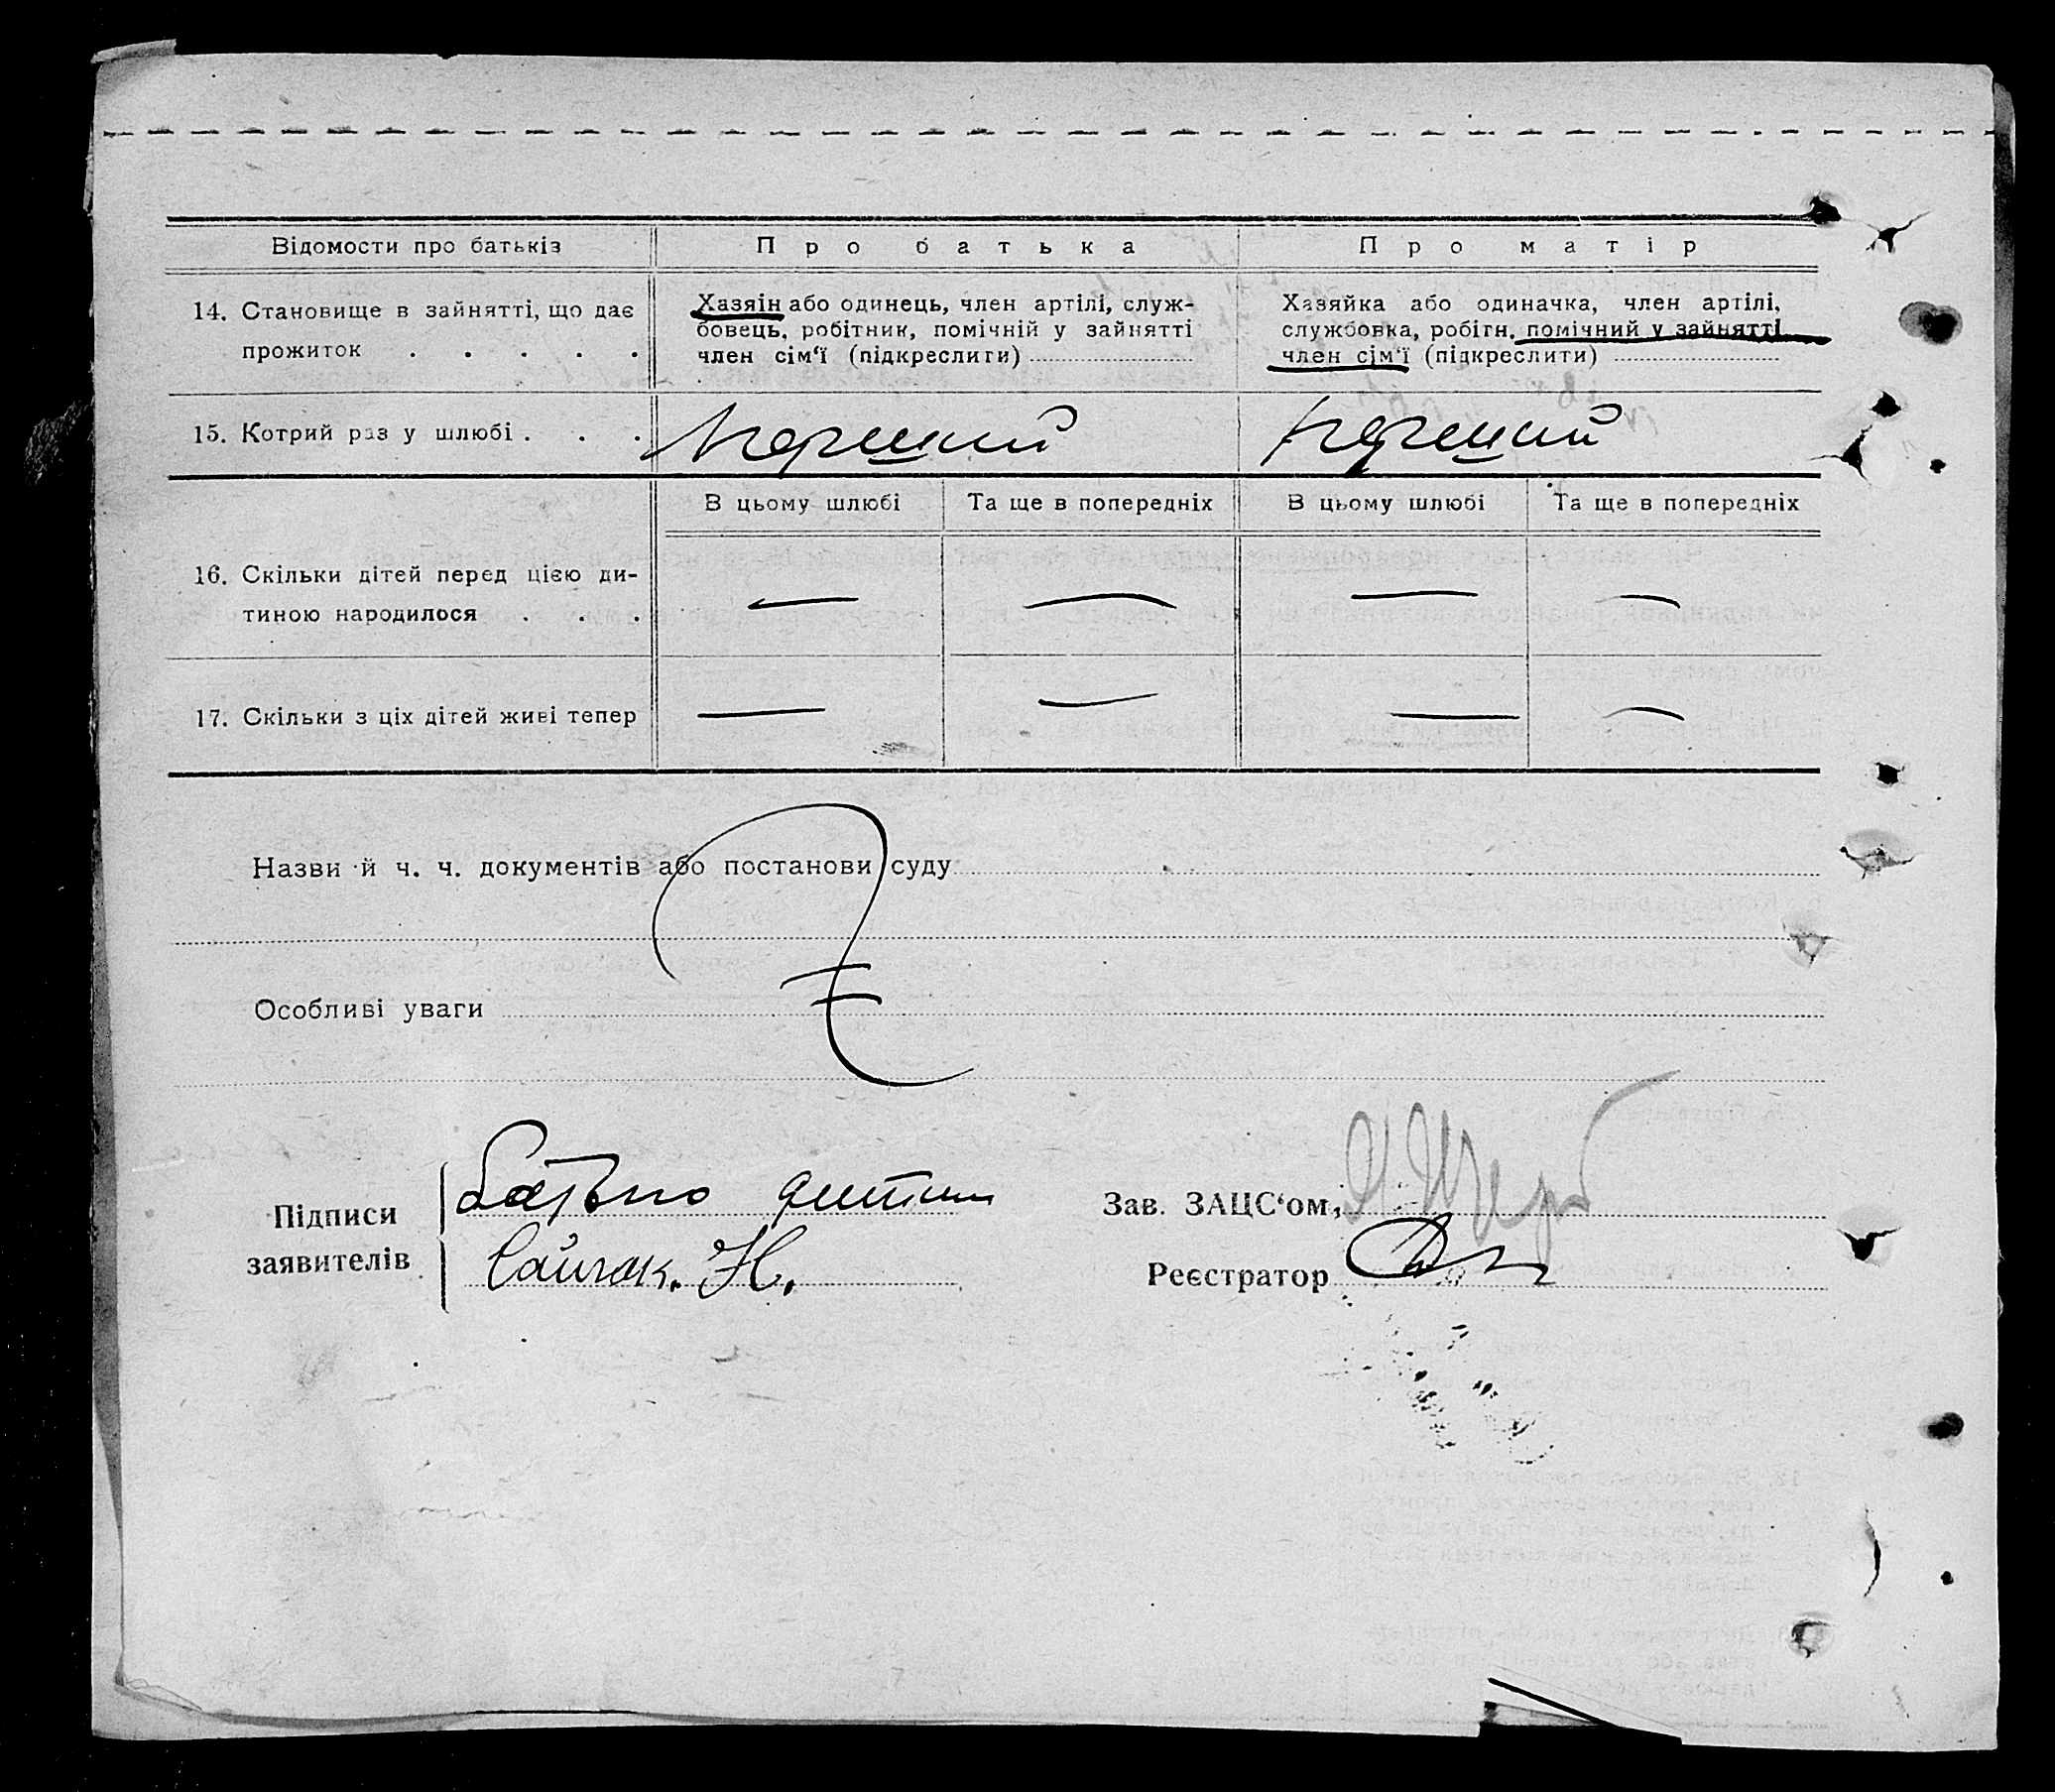 Відомости про батьків
Про батька
Про матір
14. Становище в зайнятті, що дає
прожиток . . . . .
Хазяін або одинець, член артілі, служ-
бовець, робітник, помічній у зайнятті
член сім‘ї (підкреслити)
Хазяйка або одиначка, член артілі,
службовка, робітн. помічний у зайнятті
член сім‘ї (підкреслити)
15. Котрий раз у шлюбі . . .
перший
перший
В цьому шлюбі
Та ще в попередніх
В цьому шлюбі
Та ще в попередніх
16. Скільки дітей перед цією ди-
тиною народилося . . .
— — — —
17. Скільки з ціх дітей живі тепер
— — — —
Назви й ч. ч. документів або постанови суду
Особливі уваги
Підписи
заявителів
Батько
Зав. ЗАЦС‘ом,
Реєстратор